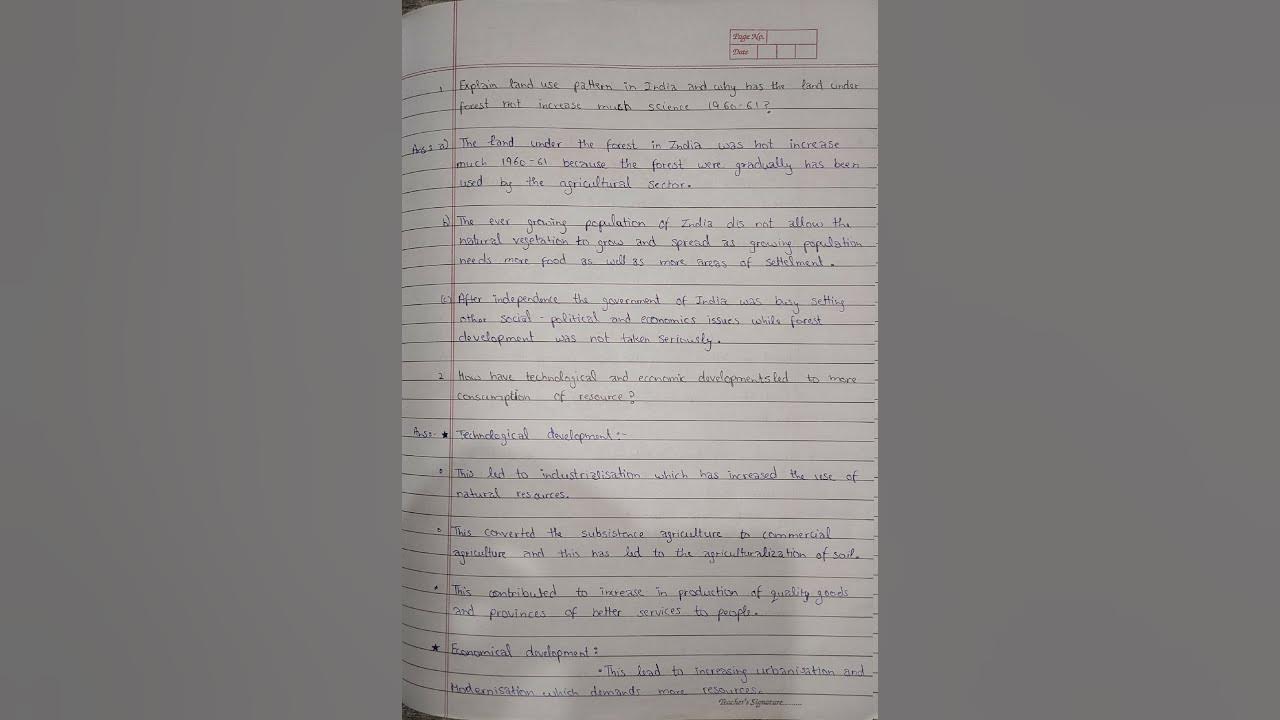 Page No.
Date
1 Explain land use pattern in India and why has the land under
forest not increase much science 1960-61?
Ans: a) The land under the forest in India was not increase
much 1960-61 because the forest were gradually has been
used by the agricultural sector.
b) The ever growing population of India dis not allow the
natural vegetation to grow and spread as growing population
needs more food as well as more areas of settelment.
(c) After independence the government of India was busy setting
other social-political and economics issues while forest
development was not taken seriously.
2 How have technological and economic developments led to more
consumption of resource?
Ans:- ★ Technological development:-
• This led to industrialisation which has increased the use of
natural resources.
• This converted the subsistence agriculture to commercial
agriculture and this has led to the agriculturalization of soil.
• This contributed to increase in production of quality goods
and provinces of better services to people.
★ Economical development:
• This lead to increasing urbanisation and
Modernisation which demands more resources.
Teacher's Signature.........